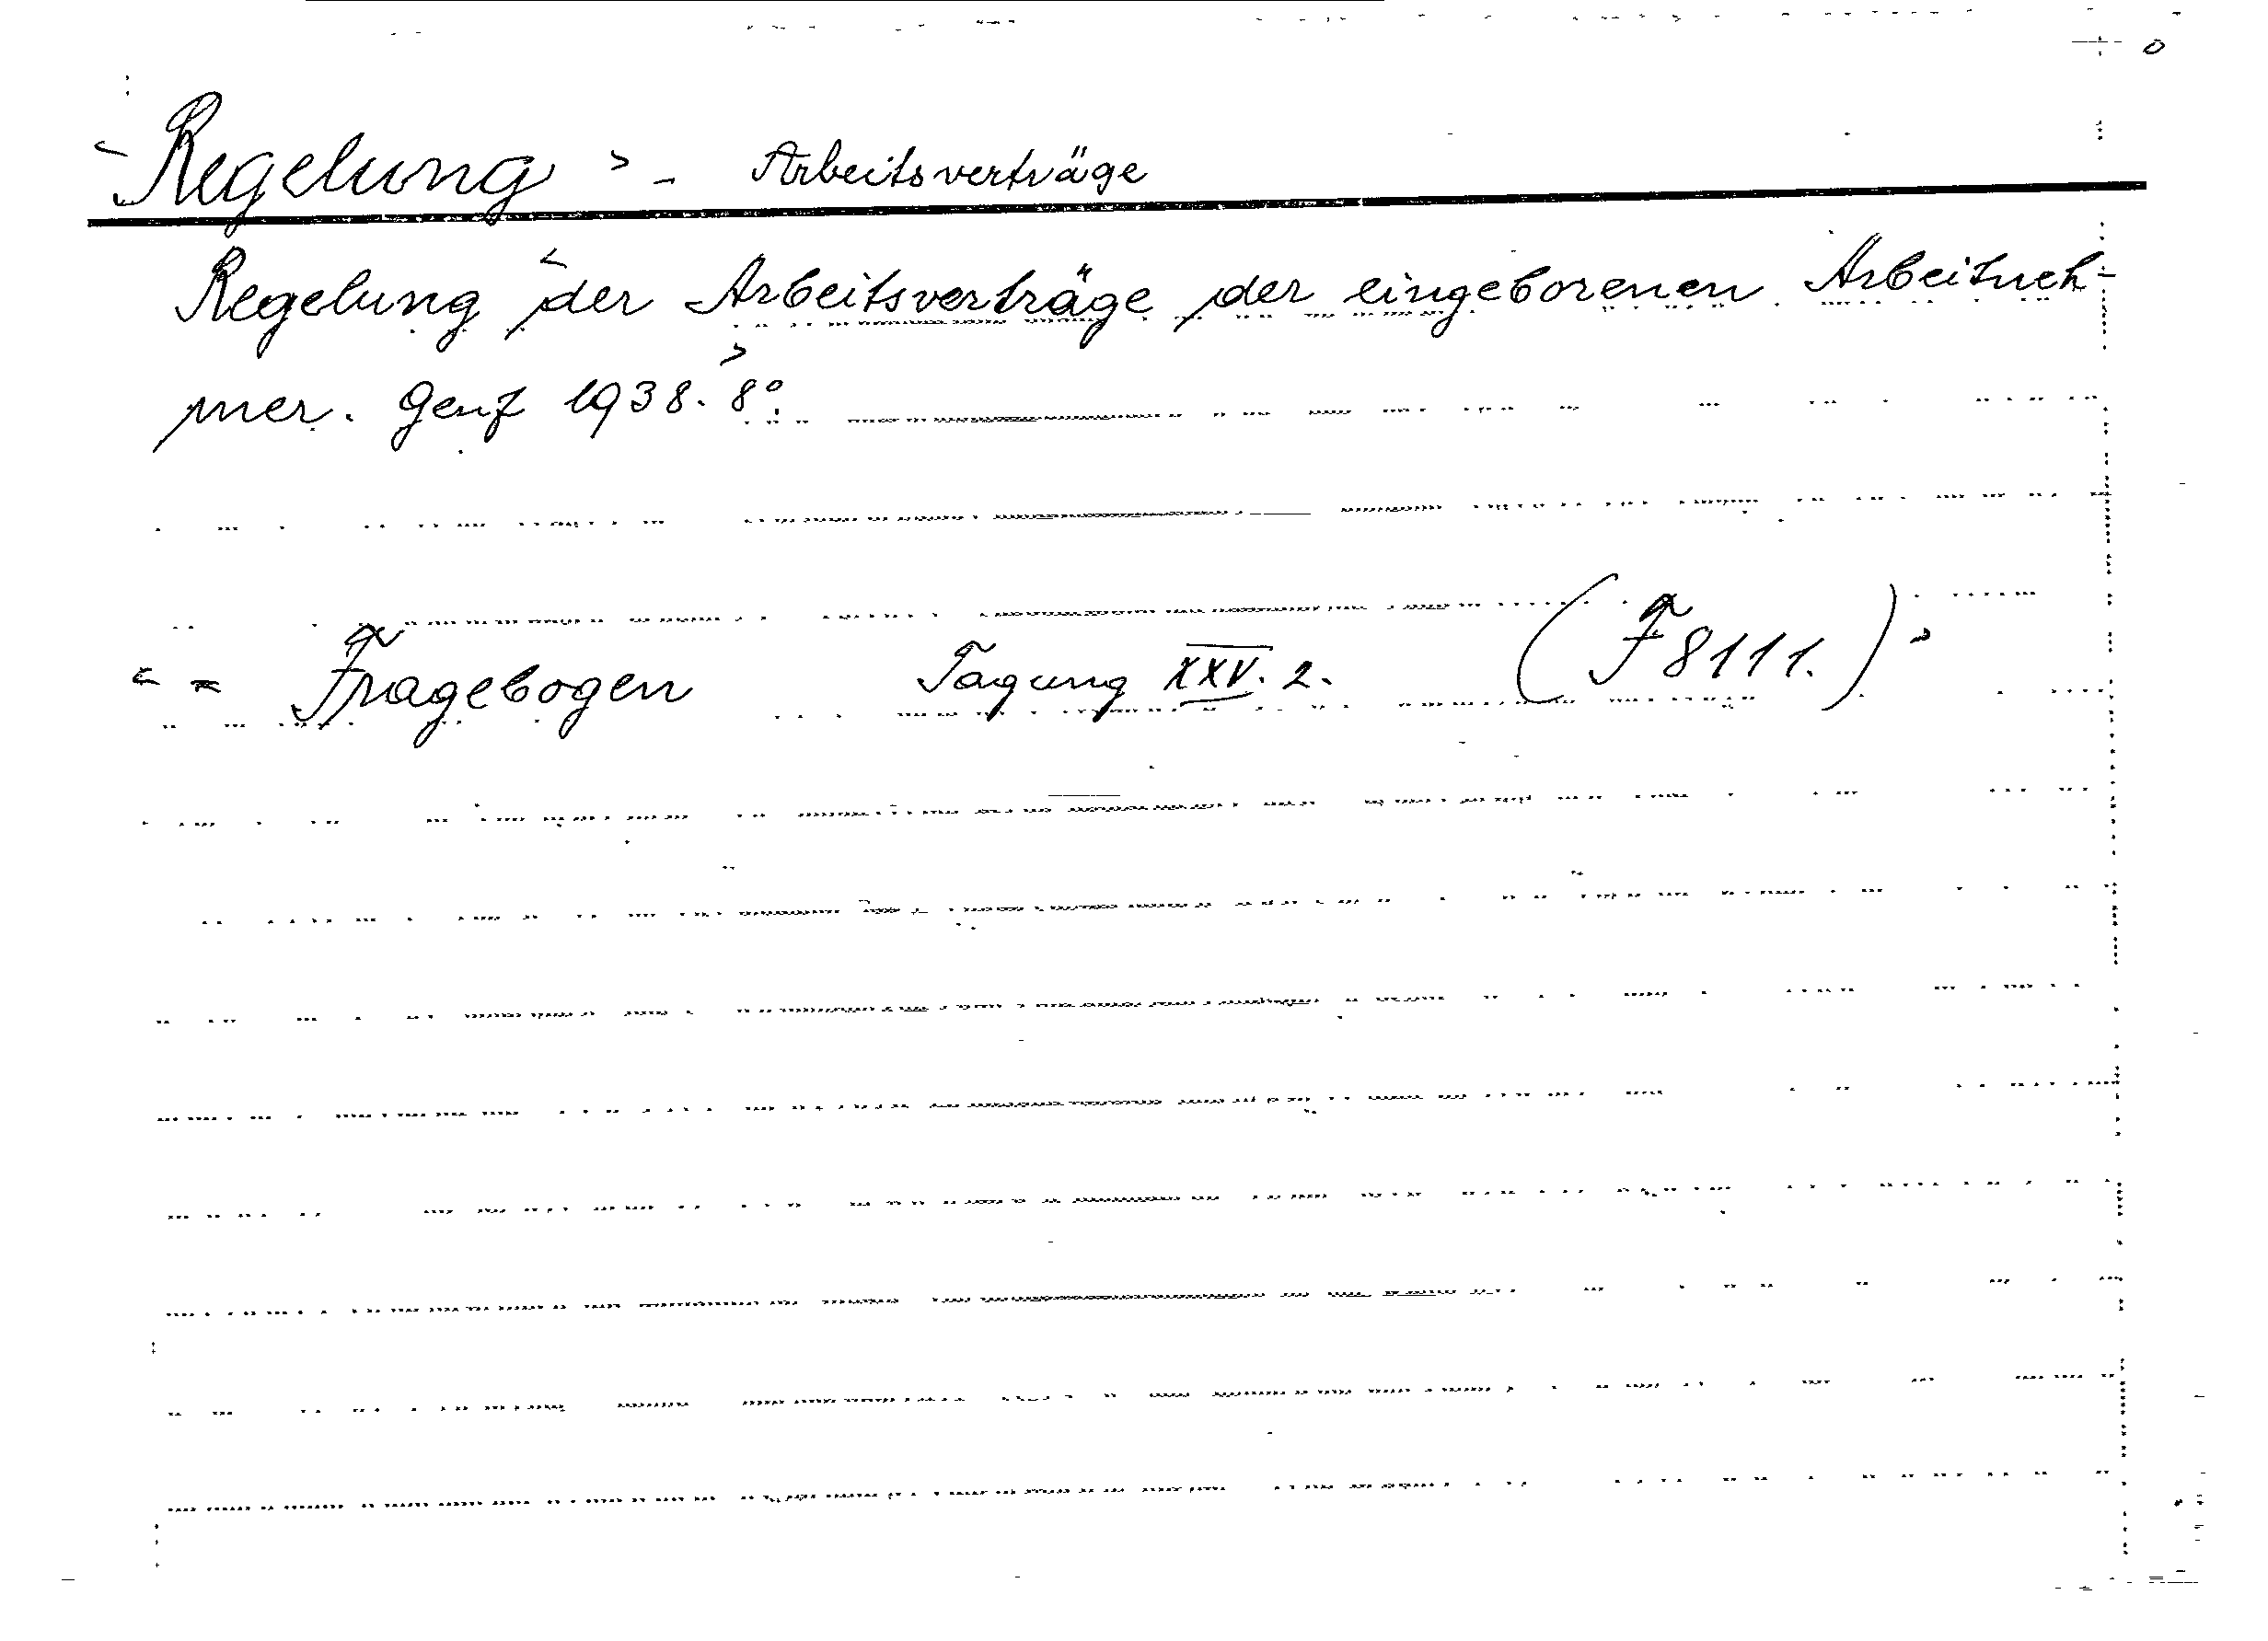 < Regelung > - Arbeitsverträge
Regelung < der Arbeitsverträge der eingeborenen Arbeitneh-
mer. Genf 1938. > 8º.
< = Fragebogen Tagung XXV. 2. (F 8111.) >